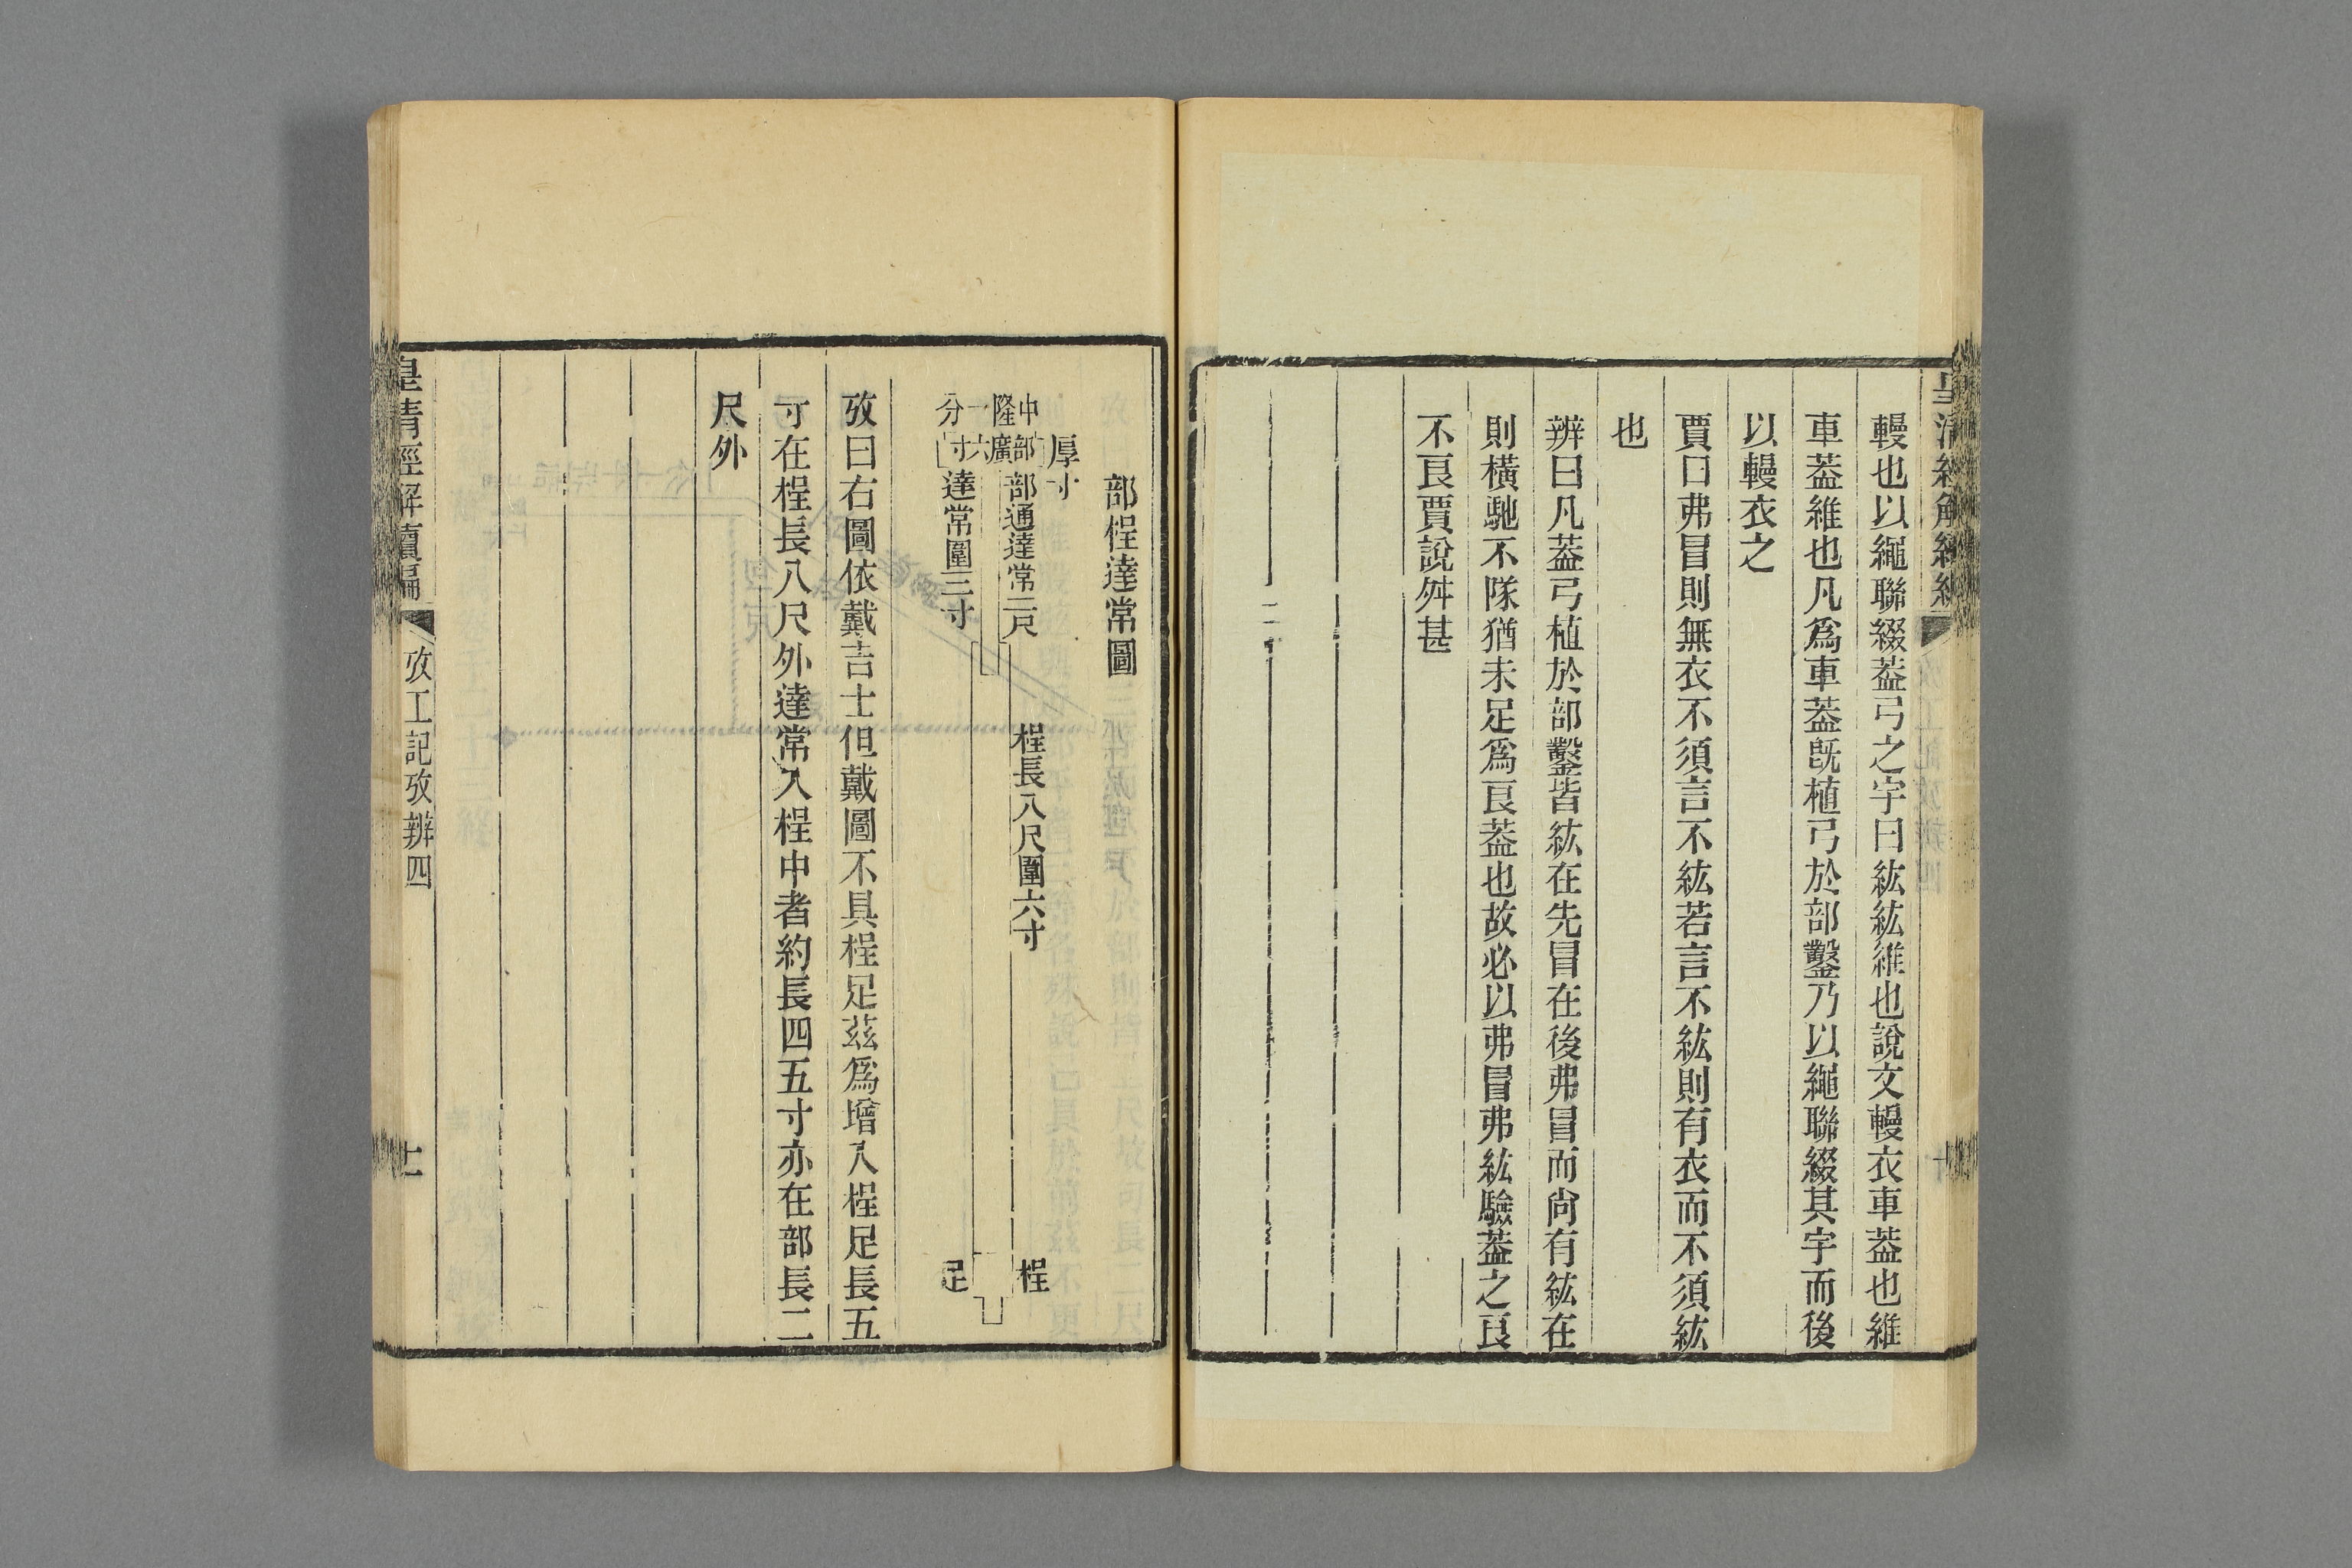 轅也以繩聯綴葢弓之宇曰紘紘維也說文轅衣車葢也維
車葢維也凡爲車葢旣植弓於部鑿乃以繩聯綴其宇而後
以轅衣之
賈曰弗冒則無衣不須言不紘若言不紘則有衣而不須紘
也
辨曰凡葢弓植於部鑿皆紘在先冒在後弗冒而尙有紘在
則橫馳不隊猶未足爲良葢也故必以弗冒弗紘驗葢之良
不良賈說舛甚
部桯達常圖
厚寸
中隆一分
部廣六寸
部通達常二尺
達常圍三寸
桯長八尺圍六寸
桯足
攷曰右圖依戴吉士但戴圖不具桯足茲爲增入桯足長五
寸在桯長八尺外達常入桯中者約長四五寸亦在部長二
尺外
皇淸經解續編
攷工記攷辨四
十一